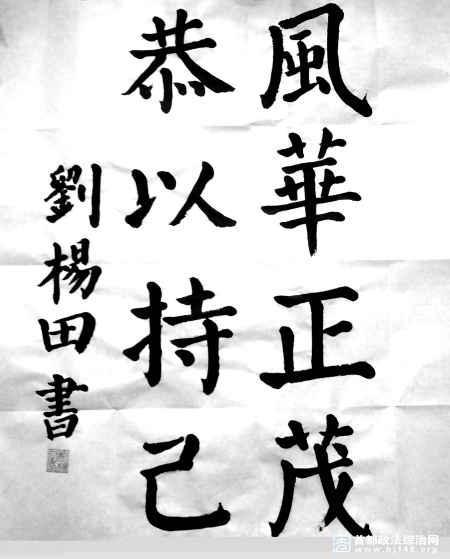 風華正茂
恭以持己
劉楊田書
首都政法综治网
www.bj148.org